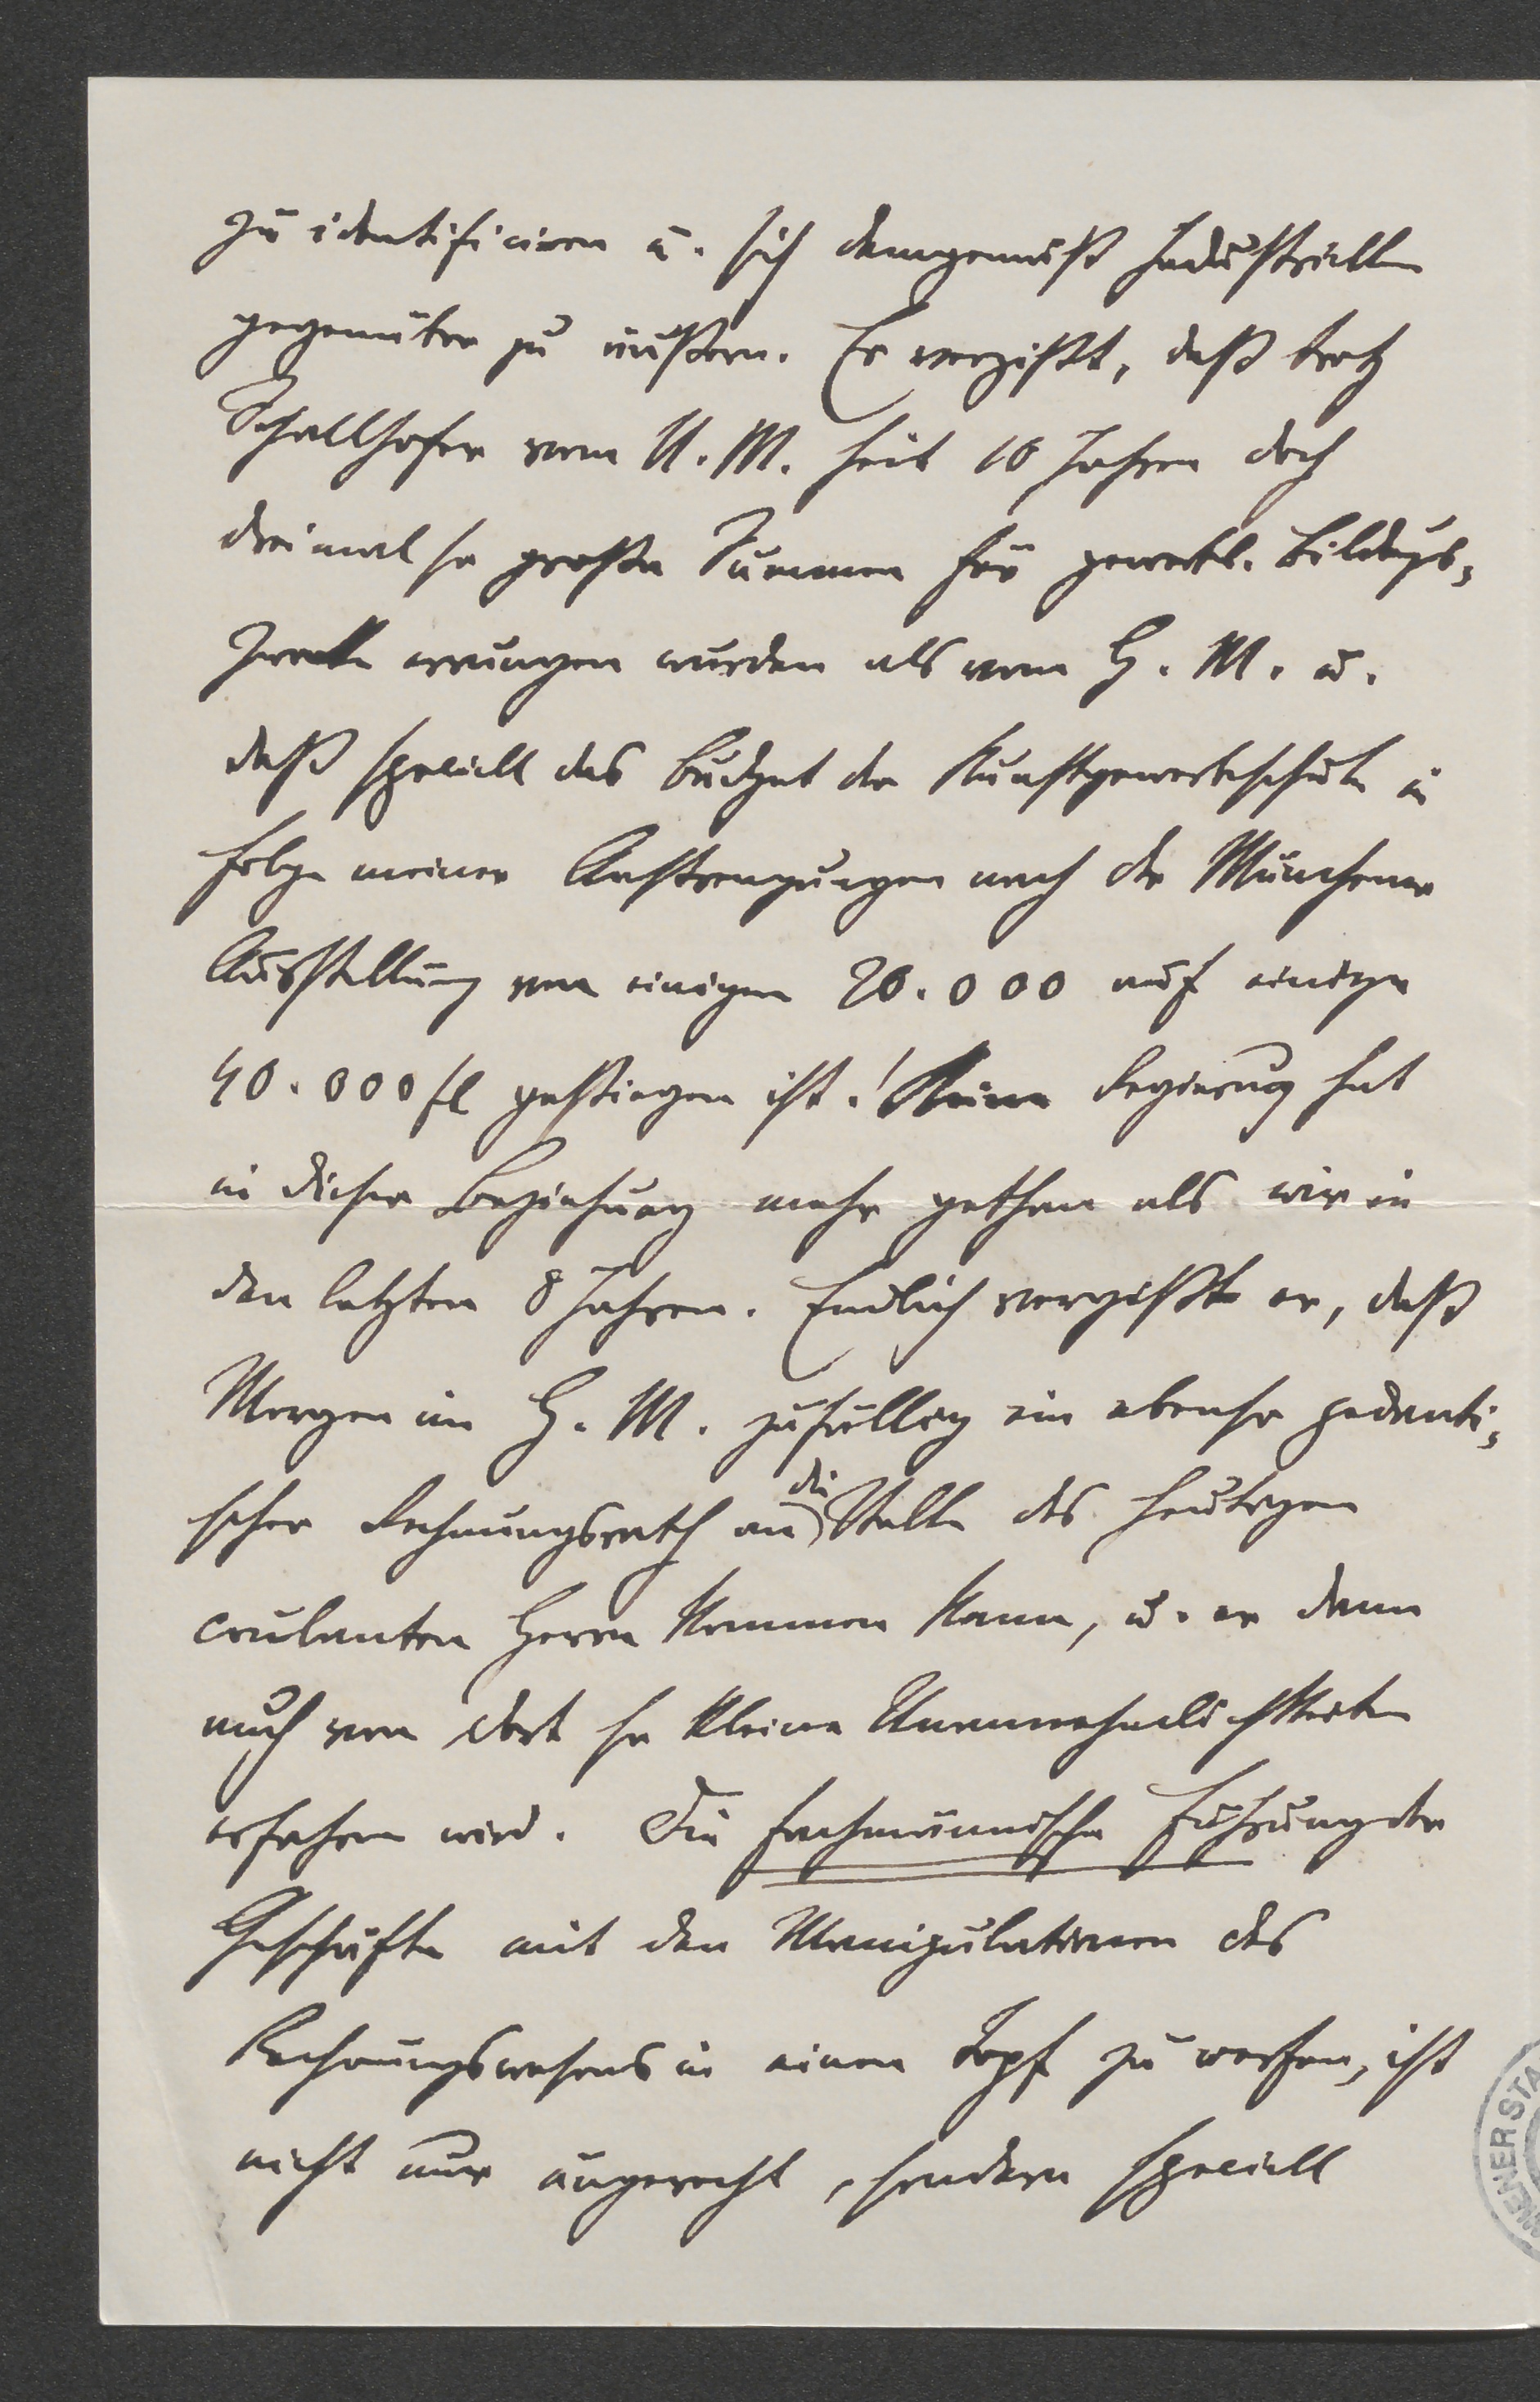 zu identificiren u. sich demgemäß Industriellen
gegenüber zu äußern. Er vergißt, daß trotz
Schallhofer vom U. M. seit 10 Jahren doch
dreimal so große Summen für gewerbl. Bildungs-
zwecke errungen wurden als vom H. M. u.
daß speciell das Budget der Kunstgewerbeschule in
Folge meiner Anstrengungen nach der Münchener
Ausstellung von einigen 20.000 auf einige
40.000 fl gestiegen ist! Keine Regierung hat
in dieser Beziehung mehr gethan als wir in
den letzten 8 Jahren. Endlich vergißt er, daß
Morgen im H. M. zufällig ein ebenso pedanti-
scher Rechnungsrath an die Stelle des heutigen
coulanten Herrn kommen kann, u. er dann
auch von dort so kleine Unannehmlichkeiten
erfahren wird. Die fachmännische Führung der
Geschäfte mit den Manipulationen des
Rechnungswesens in einen Topf zu werfen, ist
nicht nur ungerecht, sondern speciell